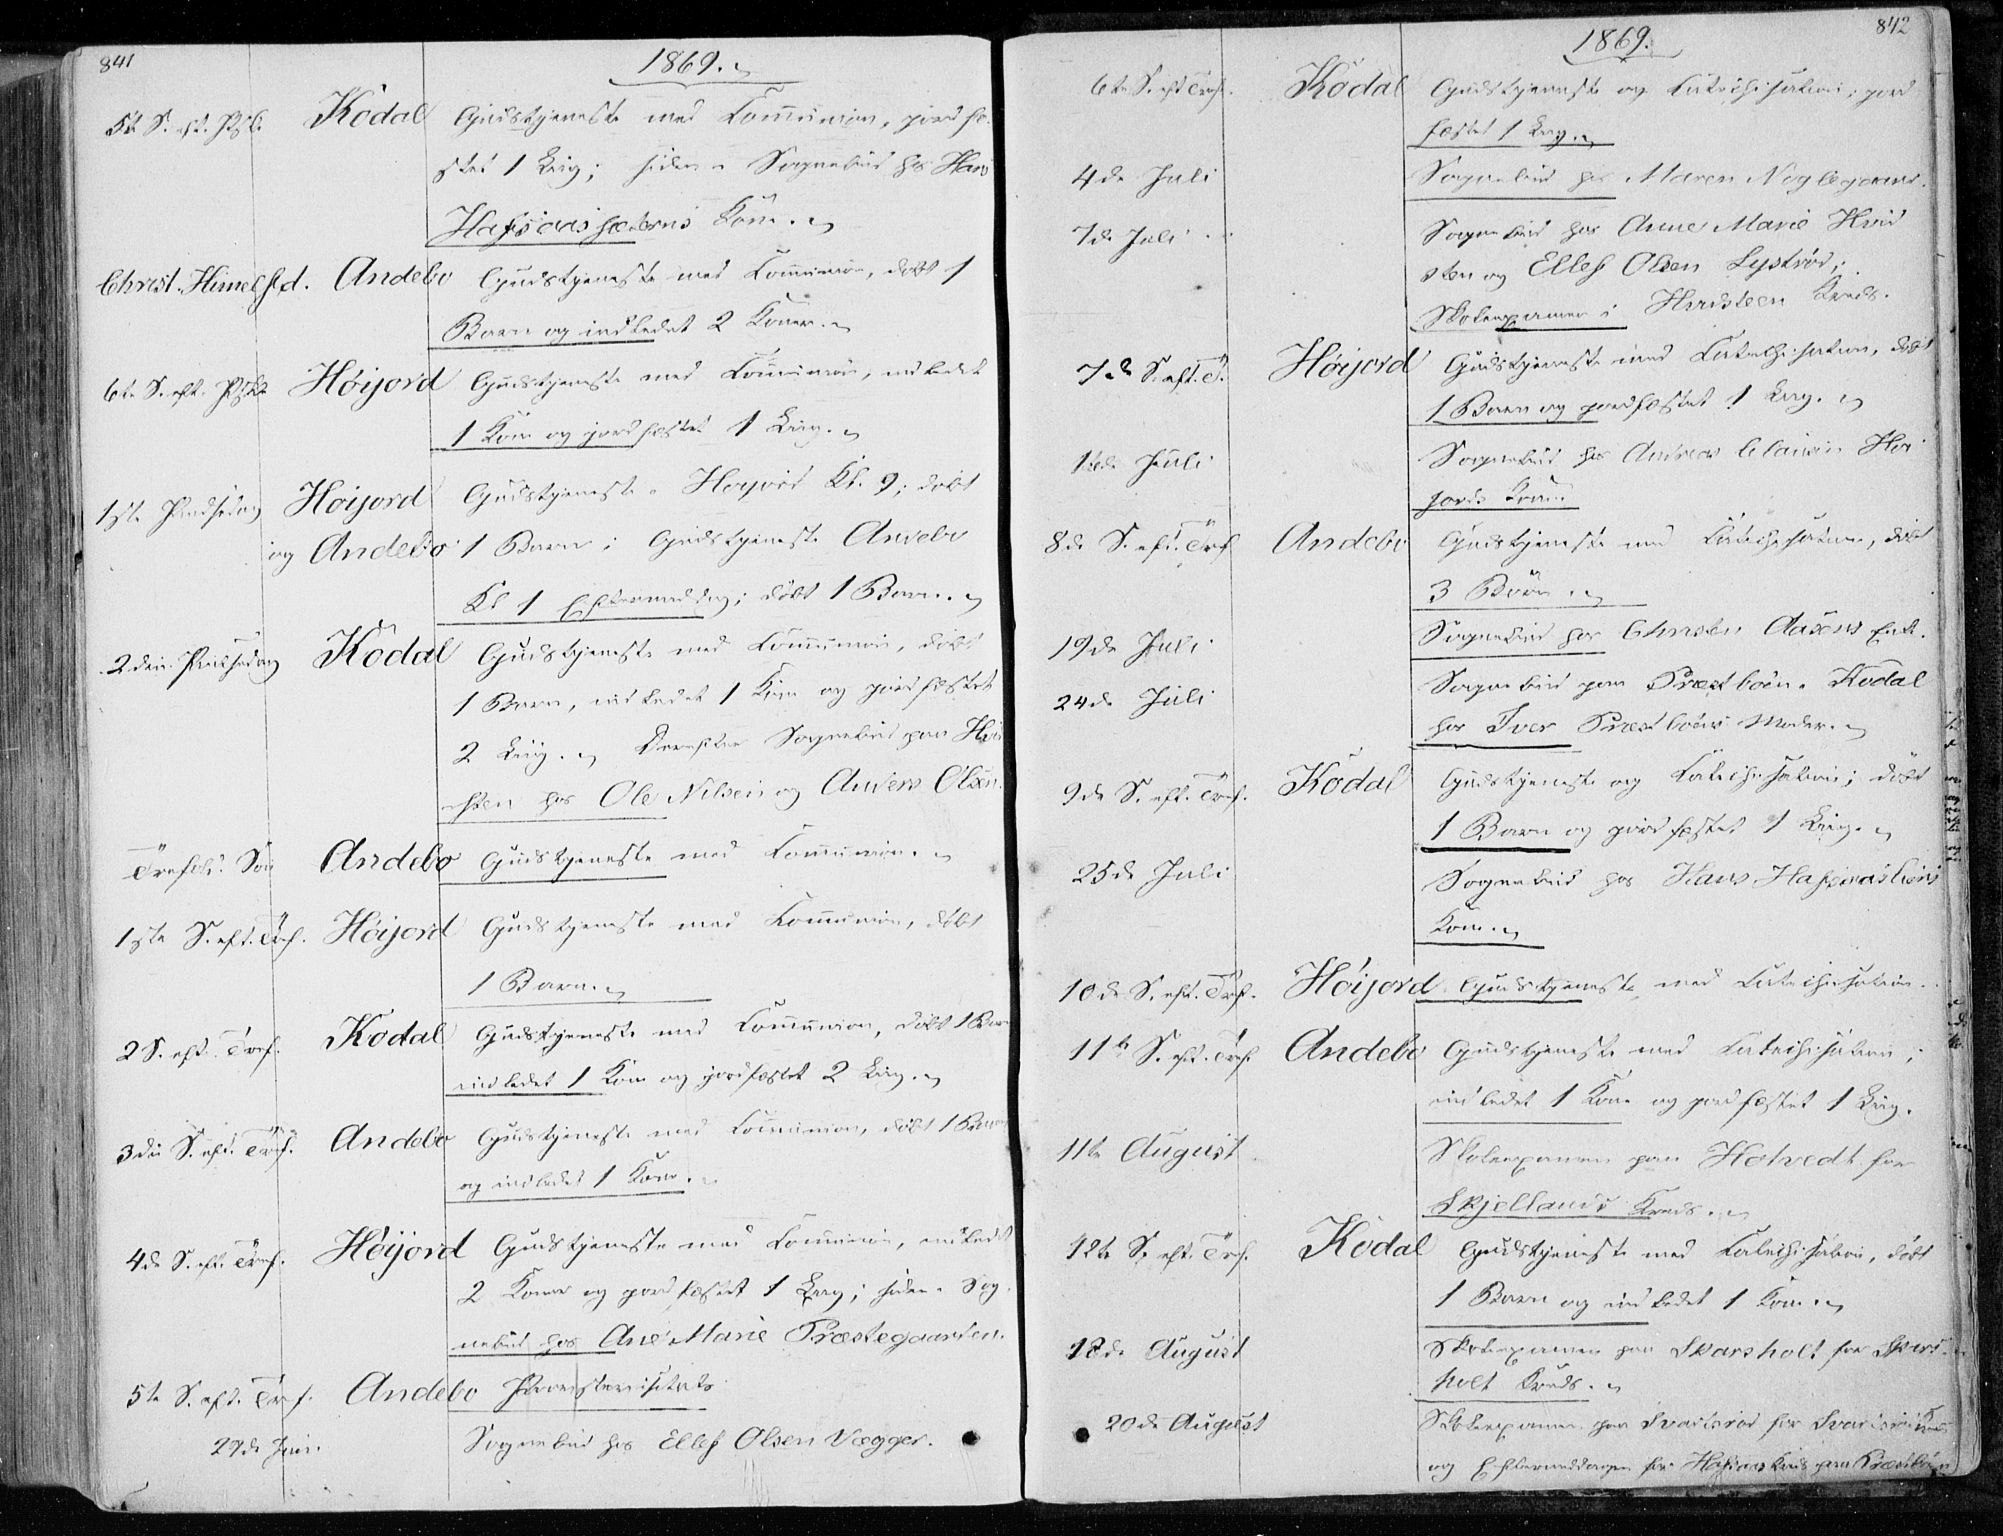 841
1869.
5te S. eft. Pske Kodal Gudstjeneste med Communion, jordfæ-
stet 1 Liig; siden Sognebud hos Hans
Hafsaasæterns Kone.
Christ. Himelf. d. Andebo Gudstjeneste med Communion, døbt 1
Barn og indledet 2 Koner.
6te S. eft. Pske Høijord Gudstjeneste med Communion, indledet
1 Kone og jordfæstet 1 Liig.
1ste Pindsedag Høijord Gudstjeneste i Høyord Kl. 9; døbt
og Andebo 1 Barn; Gudstjeneste Andebo
Kl 1 Eftermiddag; døbt 1 Barn.
2den Pindsedag Kodal Gudstjeneste med Communion, døbt
1 Barn, indledet 1 Kone og jordfæstet
2 Liig. Derefter Sognebud paa Hvid
steen hos Ole Nilsen og Anders Olsen.
Trefold. Søn Andebo Gudstjeneste med Communion.
1ste S. eft. Tref. Høijord Gudstjeneste med Communion, døbt
1 Barn.
2 S. eft. Tref. Kodal Gudstjeneste med Communion, døbt 1 Barn
indledet 1 Kone og jordfæstet 2 Liig.
3die S. eft. Tref. Andebo Gudstjeneste med Communion, døbt 1 Barn
og indledet 1 Kone.
4de S. eft. Tref. Høijord Gudstjeneste med Communion, indledet
2 Koner og jordfæstet 1 Liig; siden Sog-
nebud hos Ane Marie Præstegaarden.
5te S. eft. Tref. Andebo Provstevisitats
29de Juni. Sognebud hos Ellef Olsen Vegger.
842
1869.
6te S. eft Tref. Kodal Gudstjeneste og Catechisation; jord
fæstet 1 Liig.
4de Juli Sognebud hos Maren Nøglegaard.
7de Juli Sognebud hos Anne Marie Hvid
sten og Ellef Olsen Lystrød;
Skoleexamen i Hvidsteen Kreds.
7de S. eft. T. Høijord Gudstjeneste med Catechisation, døbt
1 Barn og jordfæstet 1 Liig.
Juli Sognebud hos Andreas Clausen Høi
jords Kone.
8de S. eft. Tref Andebo Gudstjeneste med Catechisation, døbt
3 Børn.
19de Juli Sognebud hos Christen Aasens Enke.
24de Juli Sognebud paa Præstbøen i Kodal
hos Iver Præstbøens Moder.
9de S. eft. Tref. Kodal Gudstjeneste og Catechisation; døbt
1 Barn og jordfæstet 1 Liig.
25de Juli Sognebud hos Hans Hafsaasæterns
Kone.
10de S. eft. Tref. Høijord Gudstjeneste med Catechisation.
11te S. eft. Tref. Andebo Gudstjeneste med Catechisation;
indledet 1 Kone og jordfæstet 1 Liig.
11te August Skoleexamen paa Hotvedt for
Skjellands Kreds.
12te S. eft. Tref. Kodal Gudstjeneste med Catechisation, døbt
1 Barn og indledet 1 Kone.
18de August Skoleexamen paa Skarsholt for Skars-
holt Kreds.
20de August Skoleexamen paa Svartsrød for Svartsrød Kreds
og Eftermiddagen for Hafsaas Kreds paa Præstbøen